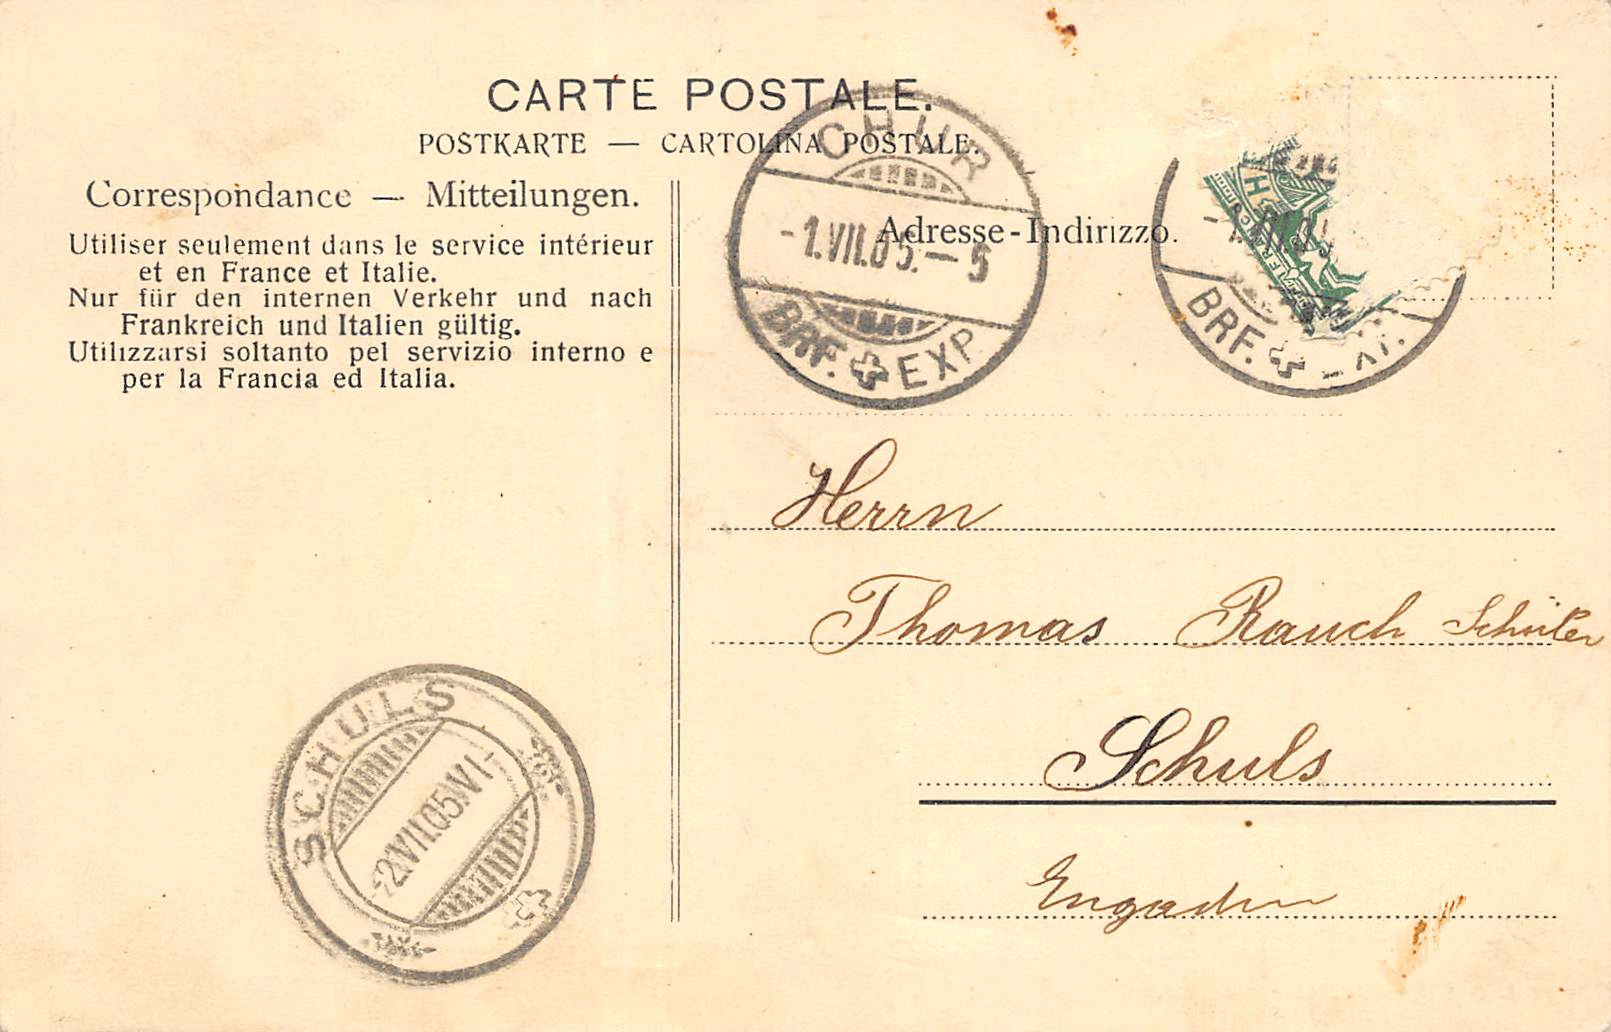 CARTE POSTALE.
POSTKARTE — CARTOLINA POSTALE.
Correspondance — Mitteilungen.
Utiliser seulement dans le service intérieur
et en France et Italie.
Nur für den internen Verkehr und nach
Frankreich und Italien gültig.
Utilizzarsi soltanto pel servizio interno e
per la Francia ed Italia.
CHUR
-1.VII.05.-5
BRF. EXP.
Adresse - Indirizzo.
BRF.
Herrn
Thomas Rauch Schüler
Schuls
Engadin
SCHULS
-2.VII.05.VI-